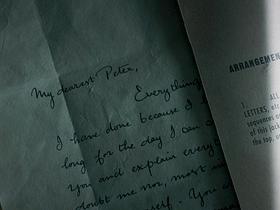 My dearest Peter,
Everything
I have done because I
long for the day I can
you and explain every
doubt me nor, most
You
ARRANGEMEN
1. ALL
LETTERS, etc
sequences o
of this jack
the top, o